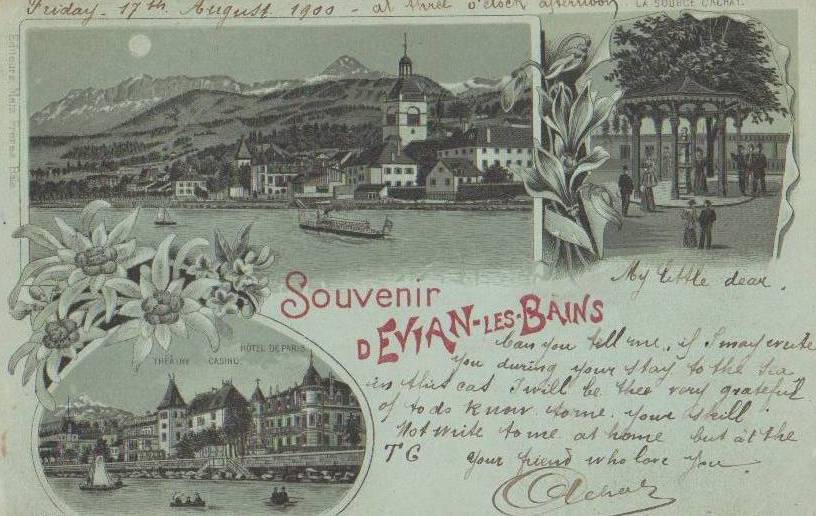 Friday - 17th August 1900 - at three o'clock afternoon
LA SOURCE CACHAT.
My little dear.
Souvenir
D'EVIAN-LES-BAINS
Can you tell me, if I may write
you during your stay to the Sea
in this cas I will be thee very grateful
of to do know to me. your skill
Not write to me at home but at the
TG your friend who love you.
THÉATRE CASINO. HÔTEL DE PARIS